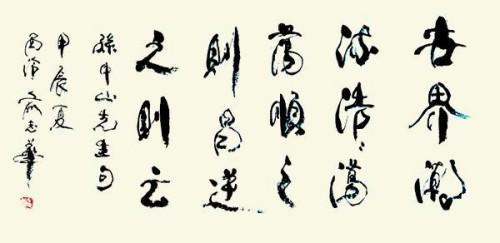 世界潮
流浩々蕩
蕩順之
則昌逆
之則亡
孫中山先生句
甲辰夏
志華